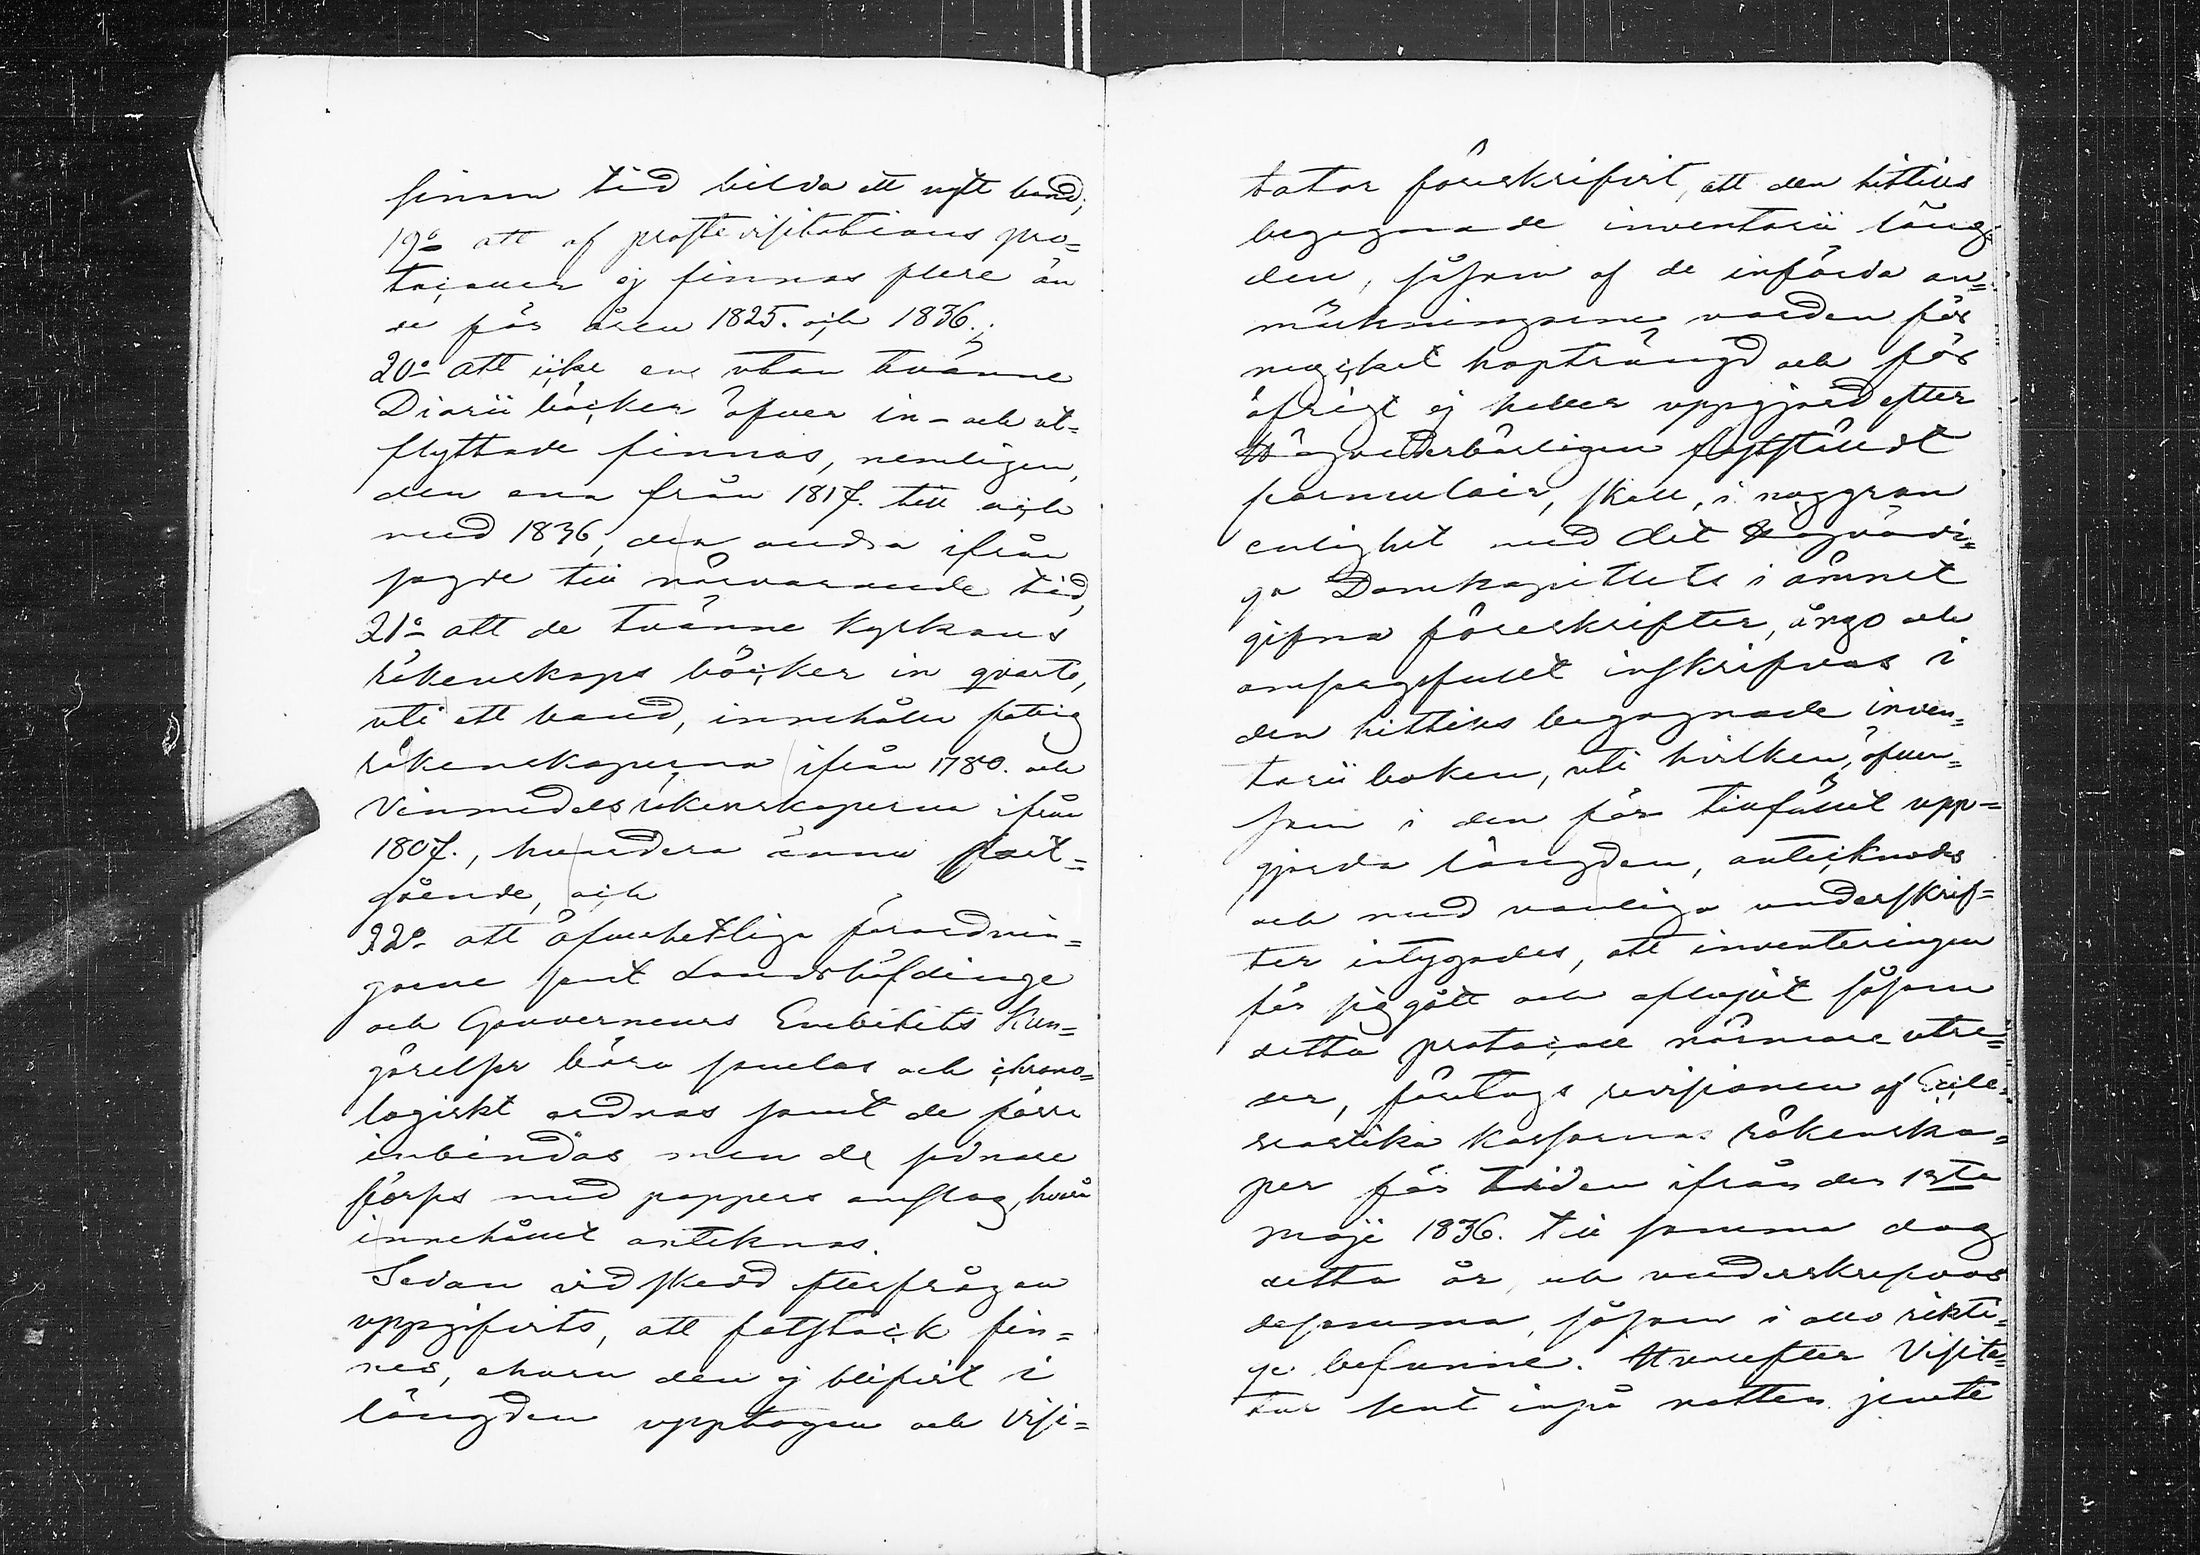 sinom tid bilda ett nytt band;
19o att af prostevisitations pro=
tocoller ej finnas flere än
de för åren 1825. och 1836.;
20o att icke en utan tvänne
Diarii böcker öfver in- och ut=
flyttade finnas, nemligen,
den ena från 1817. till och
med 1836, den andra ifrån
sagde till närvarande tid,
21o att de tvänne Kyrkans
räkenskaps böcker in qvarto,
uti ett band, innehålla fattig
räkenskaperna ifrån 1780. och
Vinmedels räkenskaperna ifrån
1807., hvardera ännu fort=
gående, och
22o att öfverhetliga förordnin=
garne samt Landshöfdinge
och Gouverneurs Embetets Kun=
görelser böra samlas och chrono=
logiskt ordnas samt de förre
inbindas men de sednare
förses med pappers omslag, hvarå
innehållet anteknas.
Sedan vid skedd efterfrågan
uppgifvits, att fatstock fin=
nes, ehuru den ej blifvit i
längden upptagen och Visi=
tator föreskrifvit, att den hittills
begagnade inventarii läng=
den, såsom af de införda an=
märkningarne vorden för
mycket hopträngd och för
öfrigt ej heller uppgjord efter
Högvederbörligen fastställdt
formulair, skall, i noggran
enlighet med det Högvördi=
ga Domkapitlets i ämnet
gifna föreskrifter, ånyo och
omsorgsfullt inskrifvas i
den hittills begagnade inven=
tarii boken, uti hvilken, äfven=
som i den för tillfället upp=
gjorda längden, antecknades
och med vanliga underskrif=
ter intygades, att inventeringen
för sig gått och aflupit såsom
detta protocoll närmare utre=
der, företogs revisionen af Eccle=
siastika Kassornas räkenska=
per för tiden ifrån den 1sta
Maji 1836. till samma dag
detta år, och underskrefvos
desamma, såsom i allo rikti=
ga befunne. Hvarefter Visita=
tor sent inpå natten jemte